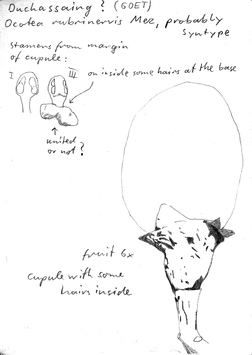 Duchassaing ? (GOET)
Ocotea rubrinervis Mez, probably
syntype
Stamens from margin
of cupule:
I
III on inside some hairs at the base
united
or not ?
fruit 6x
cupule with some
hairs inside